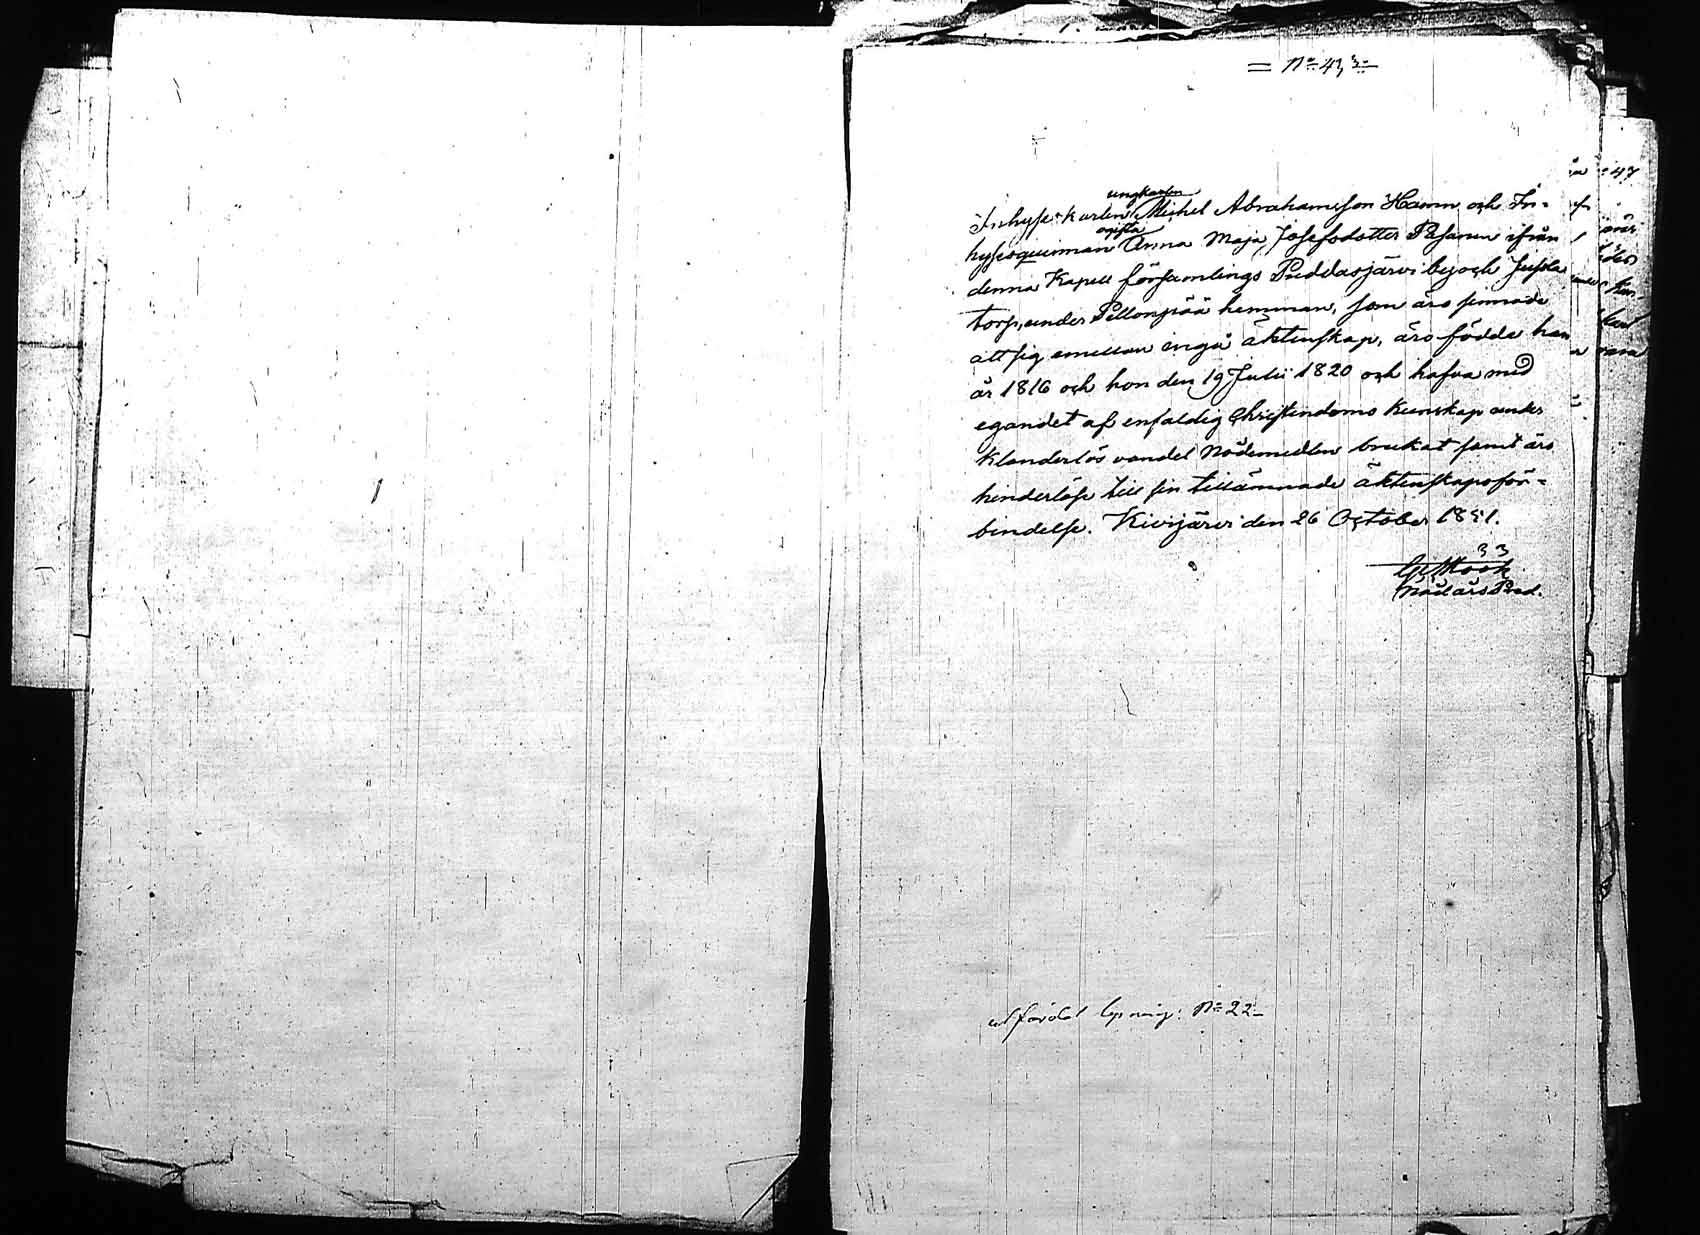 = No 43 =
ungkarlen
Inhyse karlen Michel Abrahamsson Hamn och In-
ogifta
hysesqvinnan Anna Maja Josefsdotter Pesanen ifrån
denna Kapell församlings Puddasjärvi by och Jussila
torp, under Pellonpää hemman, som äro sinnade
att sig emellan ingå äktenskap, äro födde han
år 1816 och hon den 19 Julii 1820 och hafva med
egandet af enfaldig Christendoms Kunskap under
klanderlös vandel Nådemedlen brukat samt äro
hinderlöse till sin tillämnade äktenskapsför-
bindelse. Kivijärvi den 26 October 1851.
33
Nådårs Pred.
utfärdat lysning: No 22